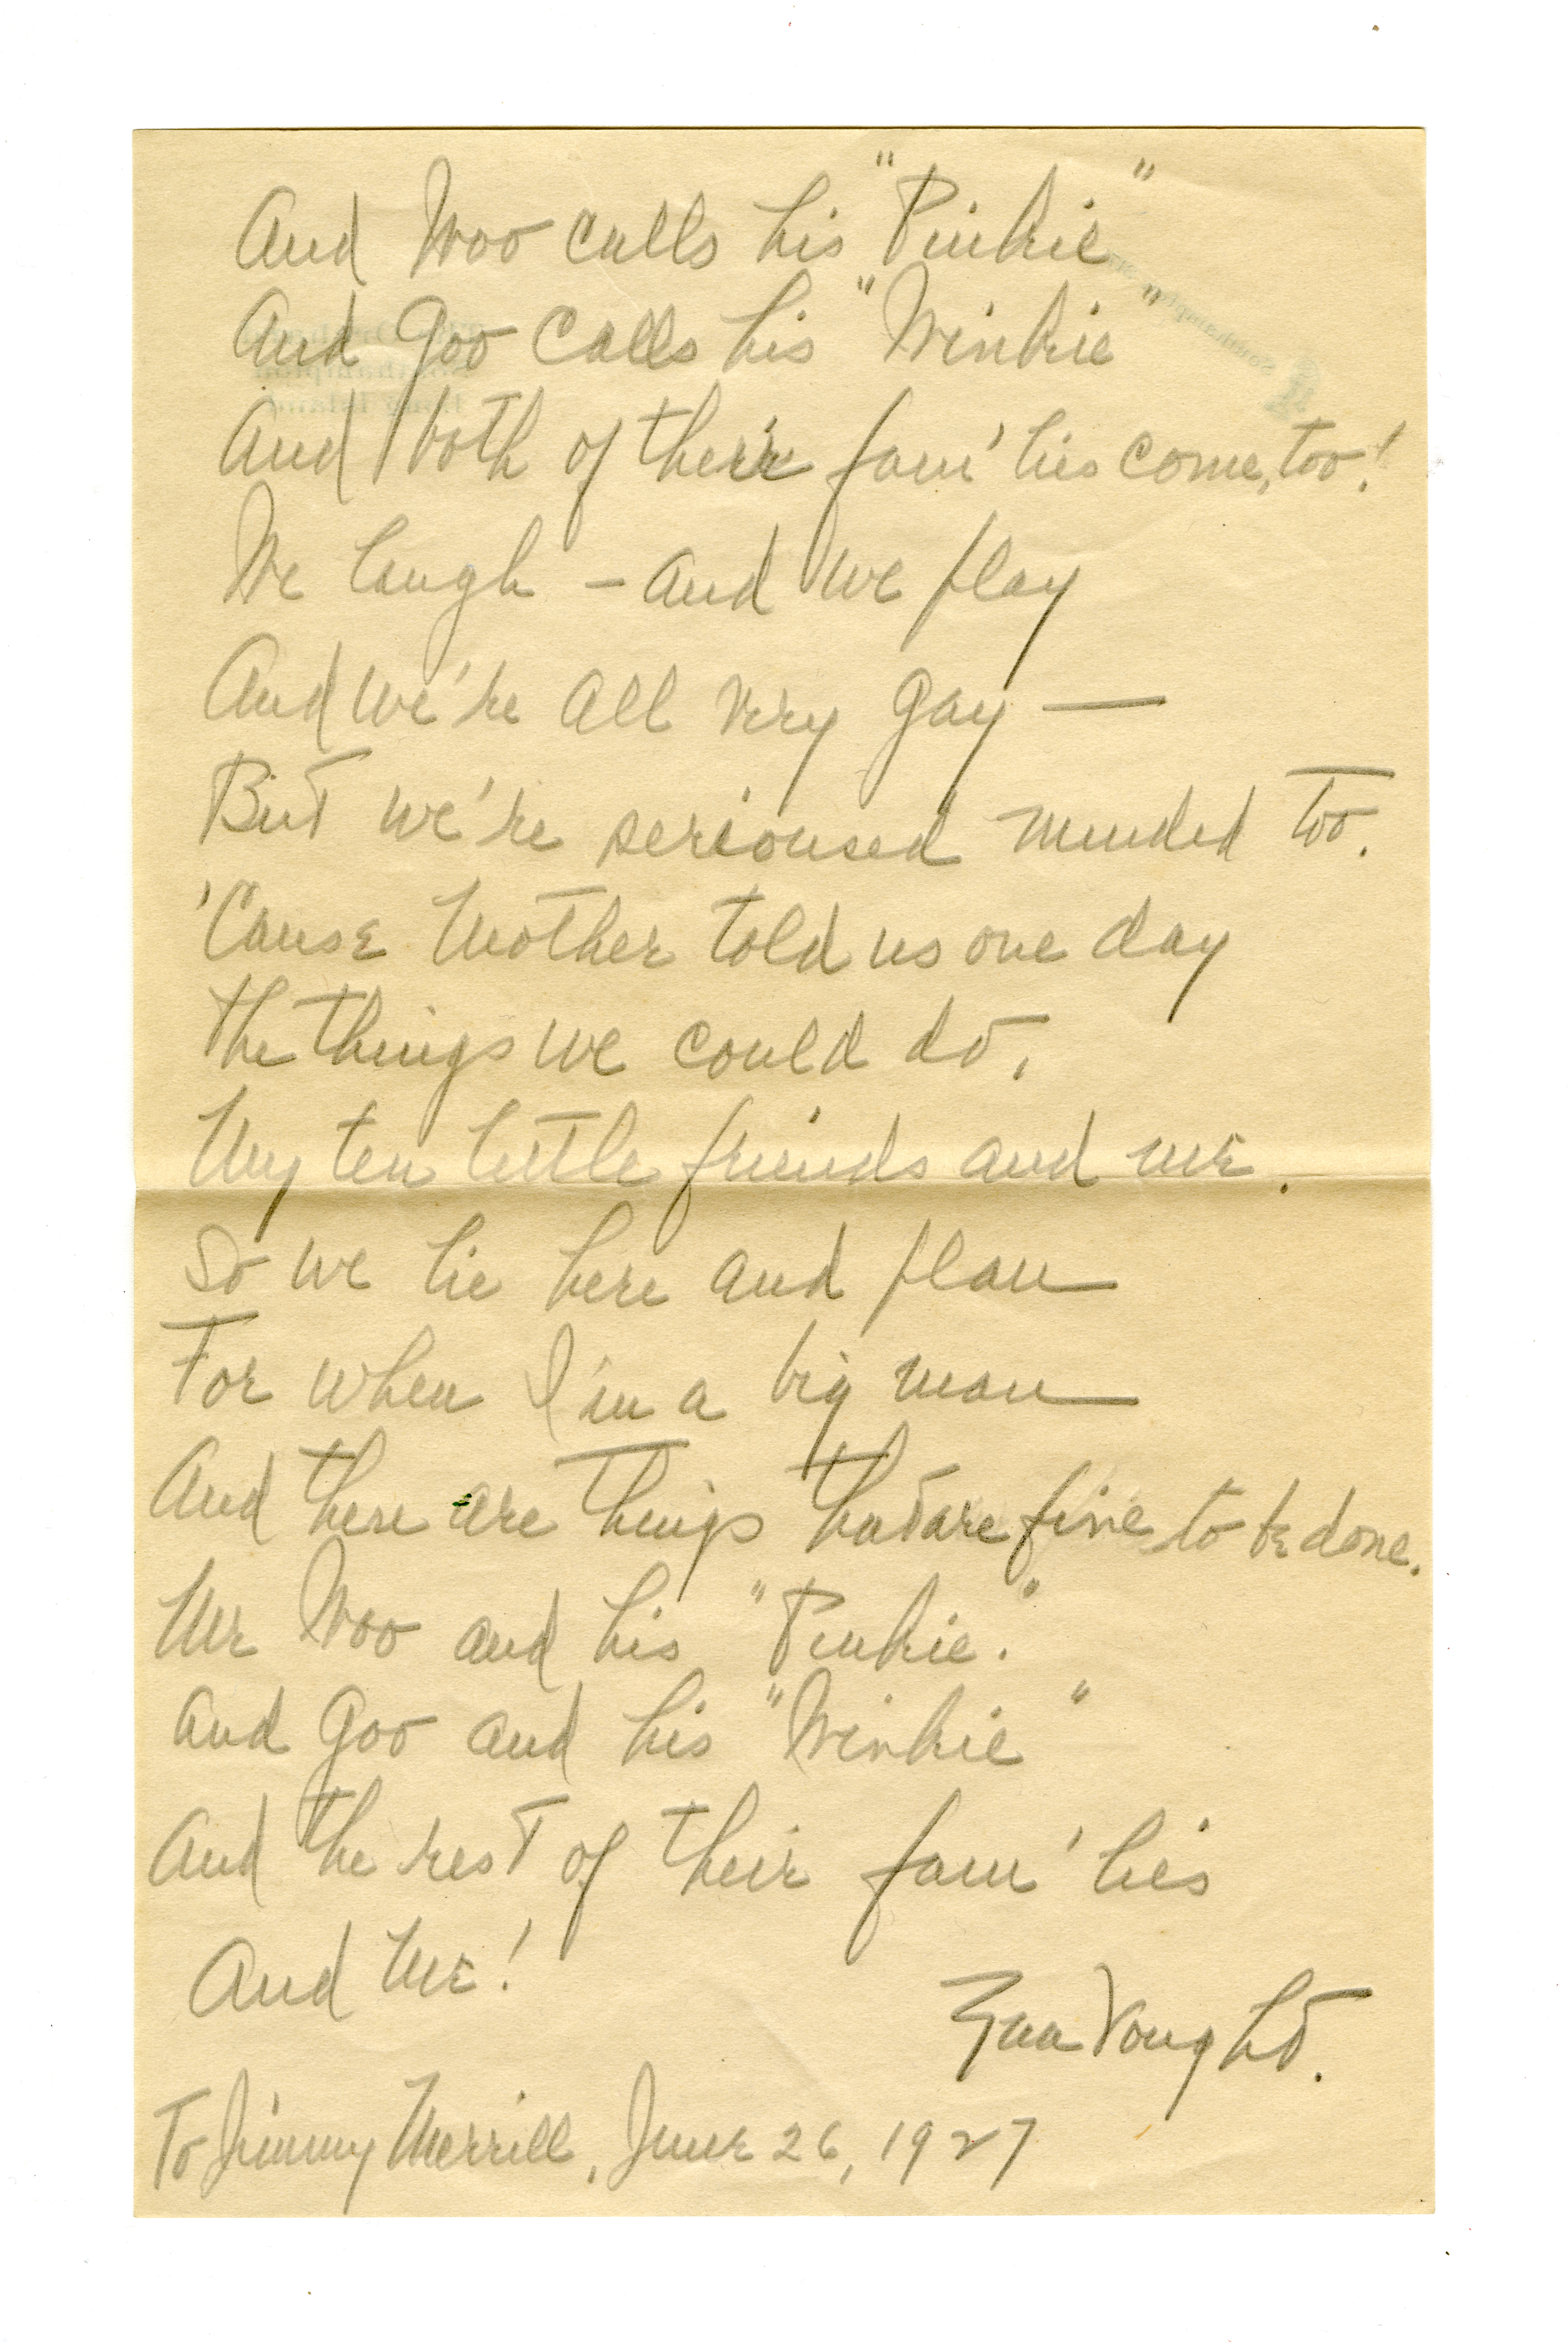 And Woo calls his "Pinkie"
And Goo calls his "Winkie"
And both of their fam'lies come, too!
We laugh – and we play
And we're all very gay —
But we're serioused minded too.
'Cause Mother told us one day
The things we could do,
My ten little friends and me.
So we lie here and plan
For when I'm a big man
And there are things that are fine to be done.
Me Woo and his "Pinkie."
And Goo and his "Winkie"
And the rest of their fam'lies
And Me!
Vought.
To Jimmy Merrill, June 26, 1927
Southampton
Long Island